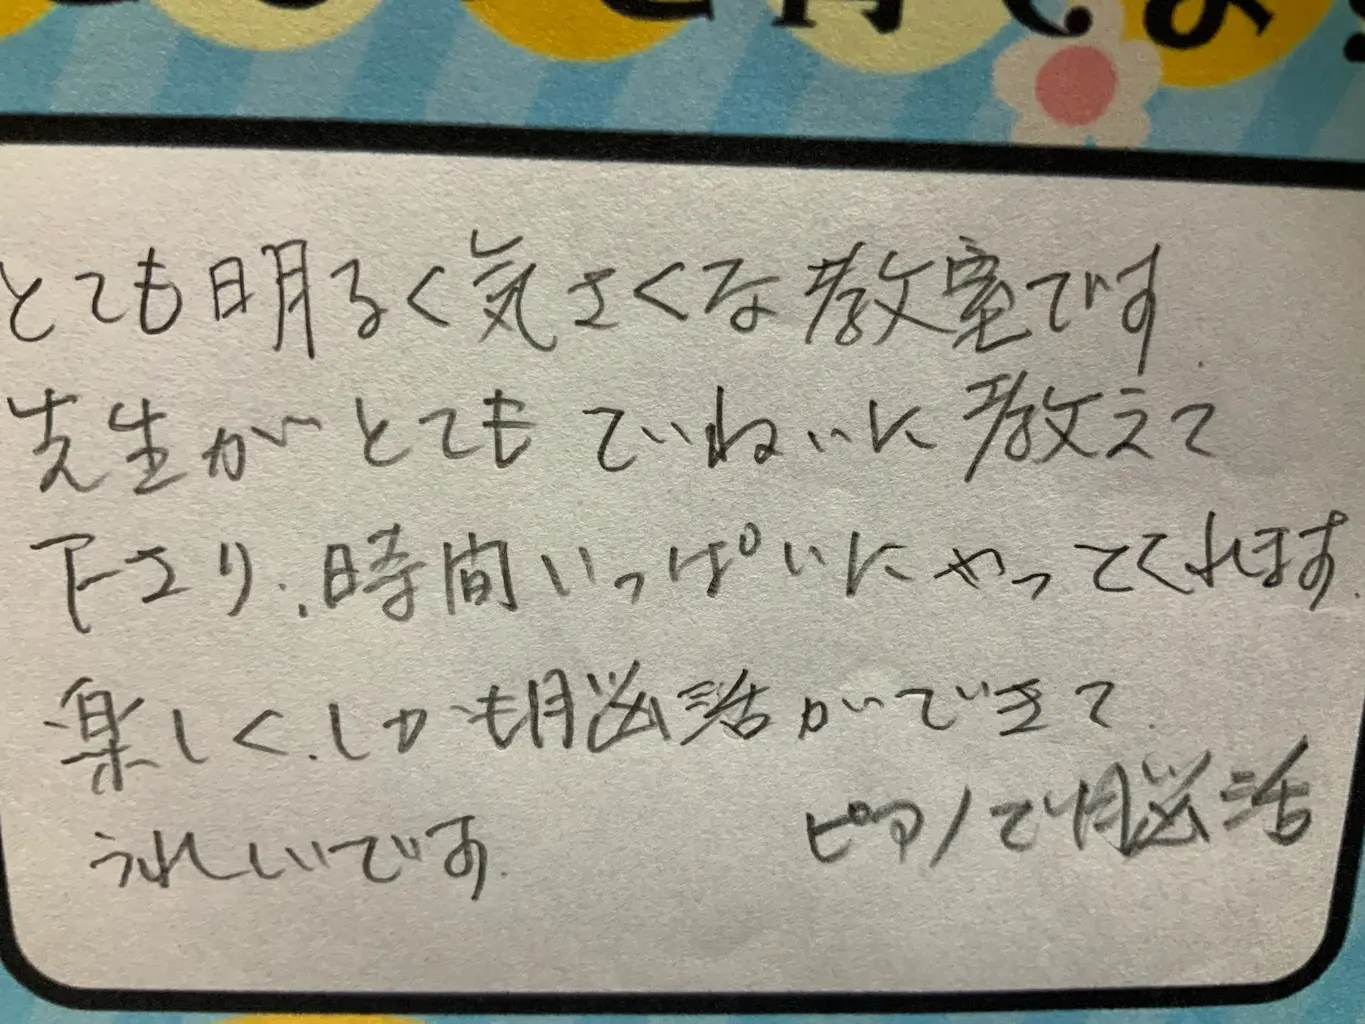 とても明るく気さくな教室です.
先生がとてもていねいに教えて
下さり、時間いっぱいにやってくれます.
楽しく、しかも脳活ができて
うれしいです.
ピアノで脳活